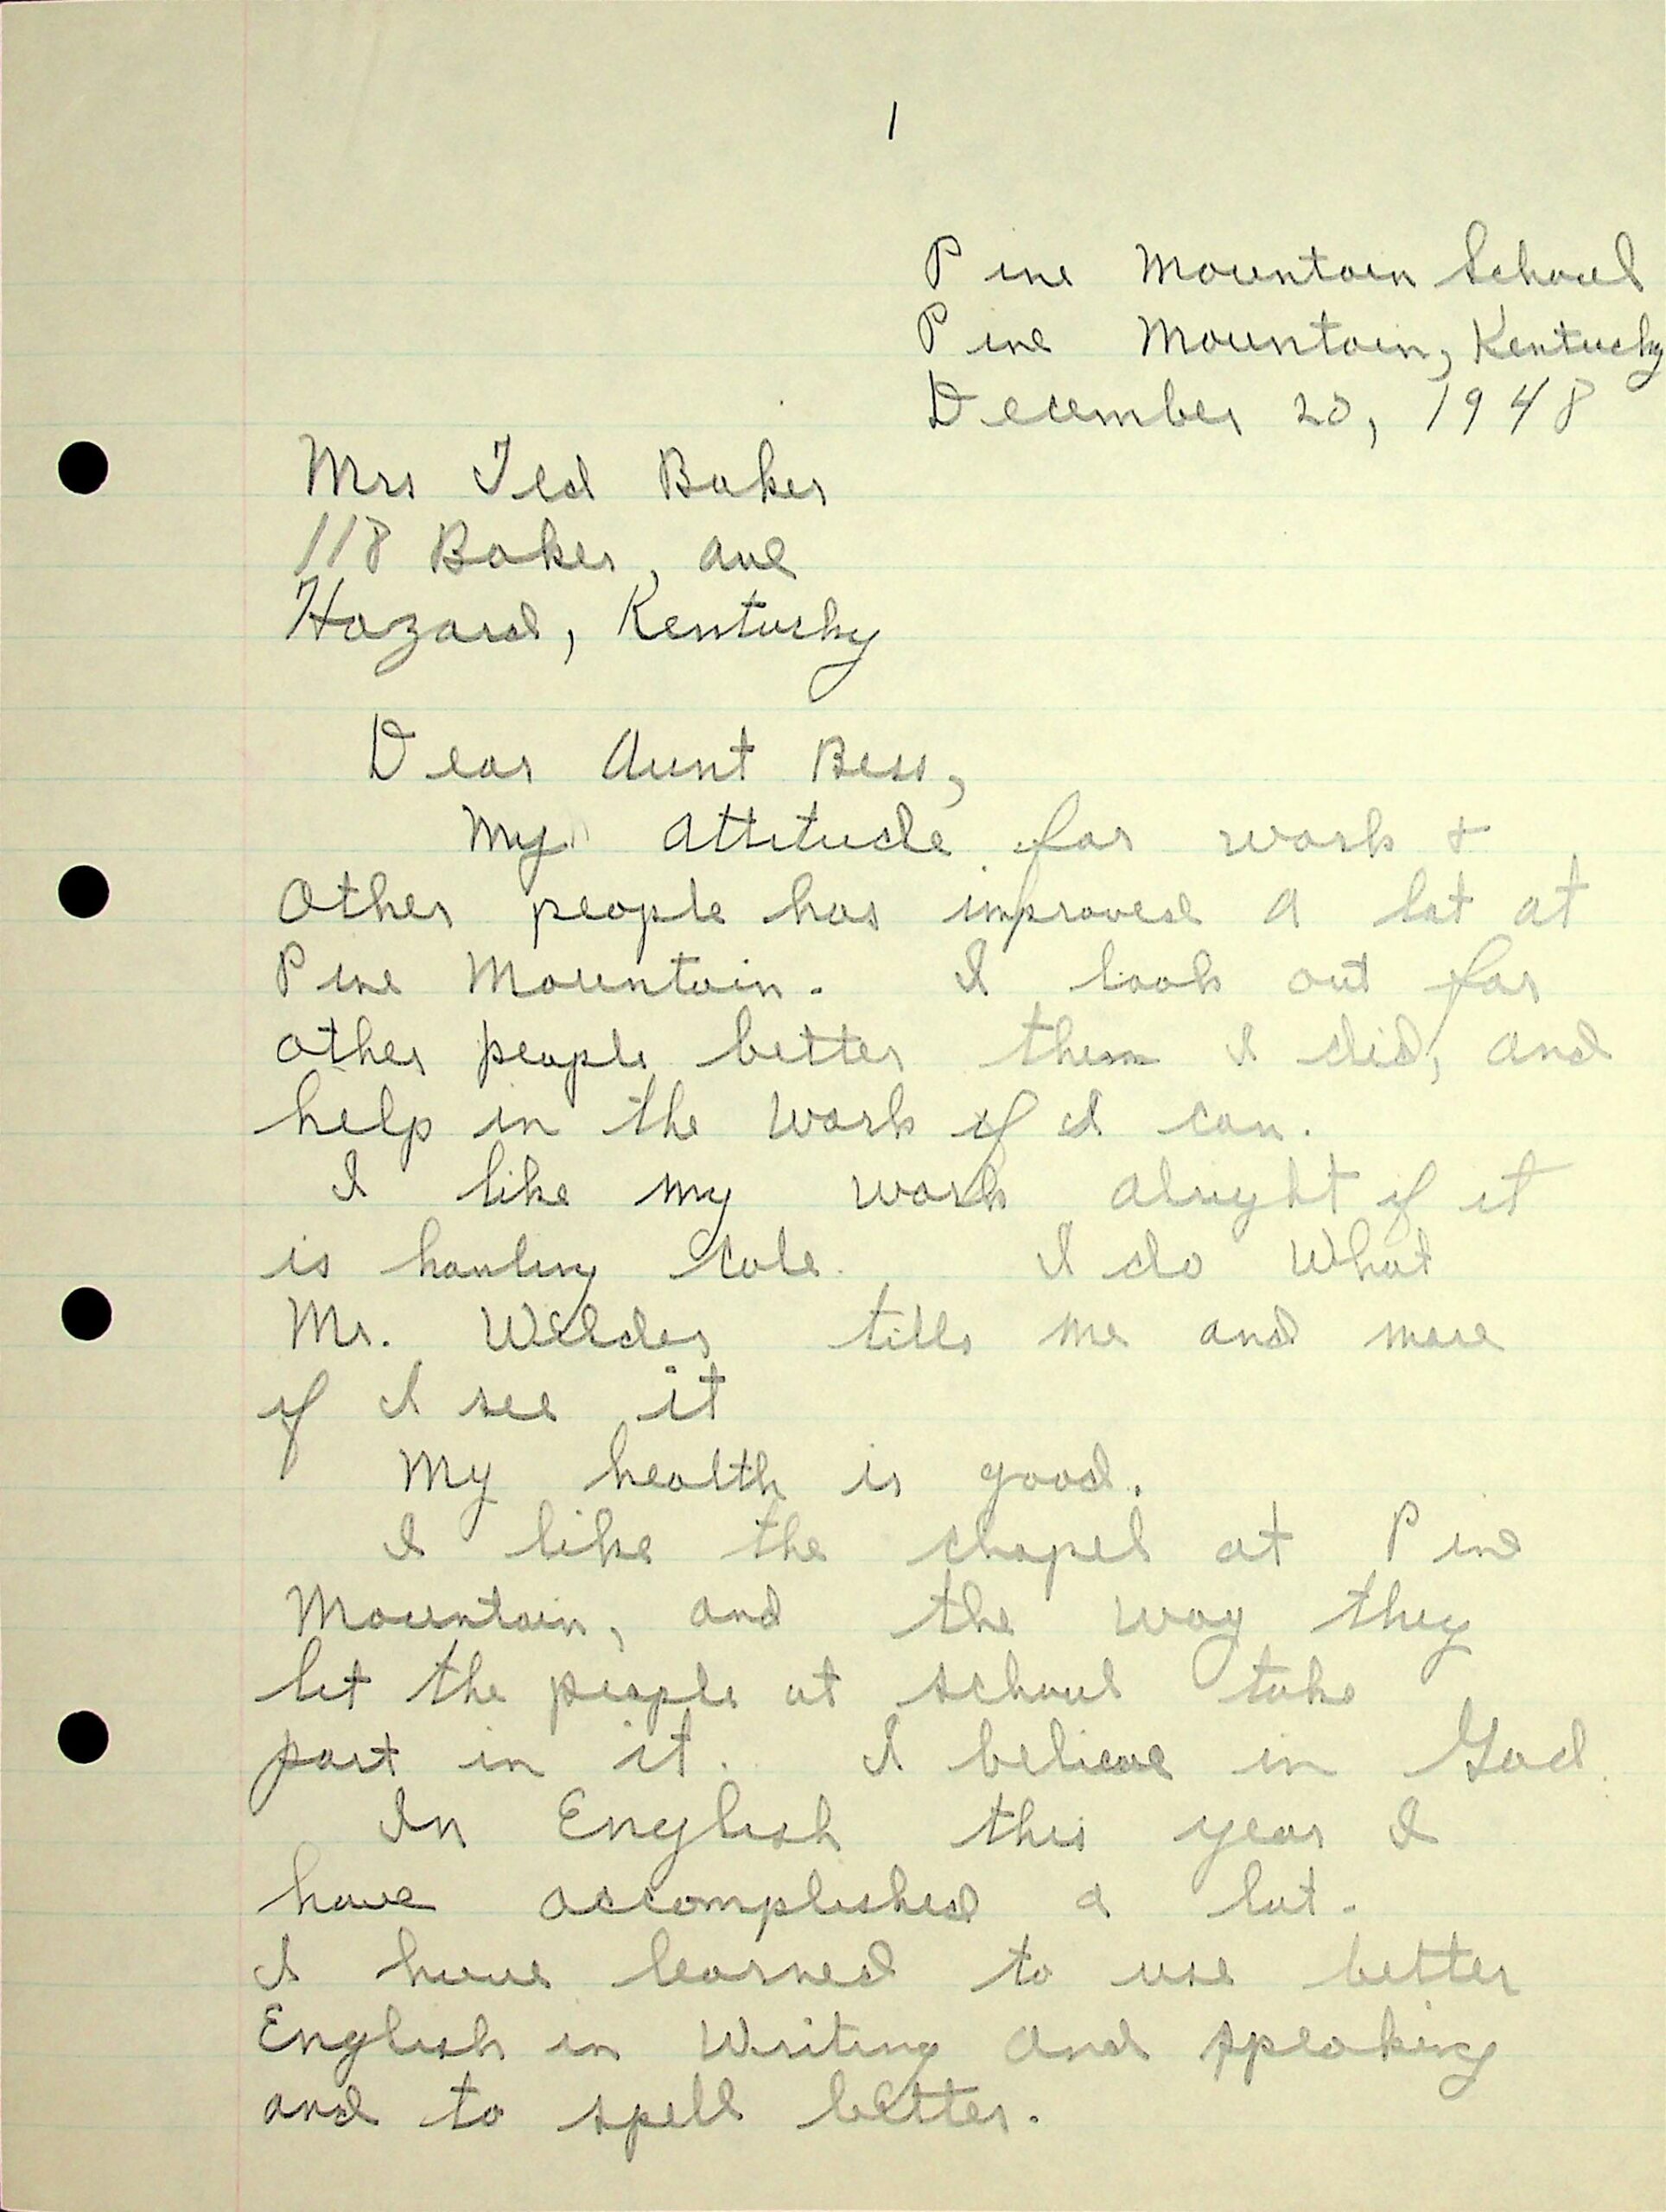 1
Pine Mountain School
Pine Mountain, Kentucky
December 20, 1948
Mrs Ted Baker
118 Baker, ave
Hazard, Kentucky
Dear Aunt Bess,
My attitude for work +
other people has improved a lot at
Pine Mountain. I look out for
other people better them I did, and
help in the work if I can.
I like my work alright if it
is hauling cole. I do what
Mr. Wilder tills me and more
if I see it
My health is good.
I like the chapel at Pine
Mountain, and the way they
let the people at school take
part in it. I believe in God.
In English this year I
have accomplished a lot.
I have learned to use better
English in writing and speaking
and to spell better.